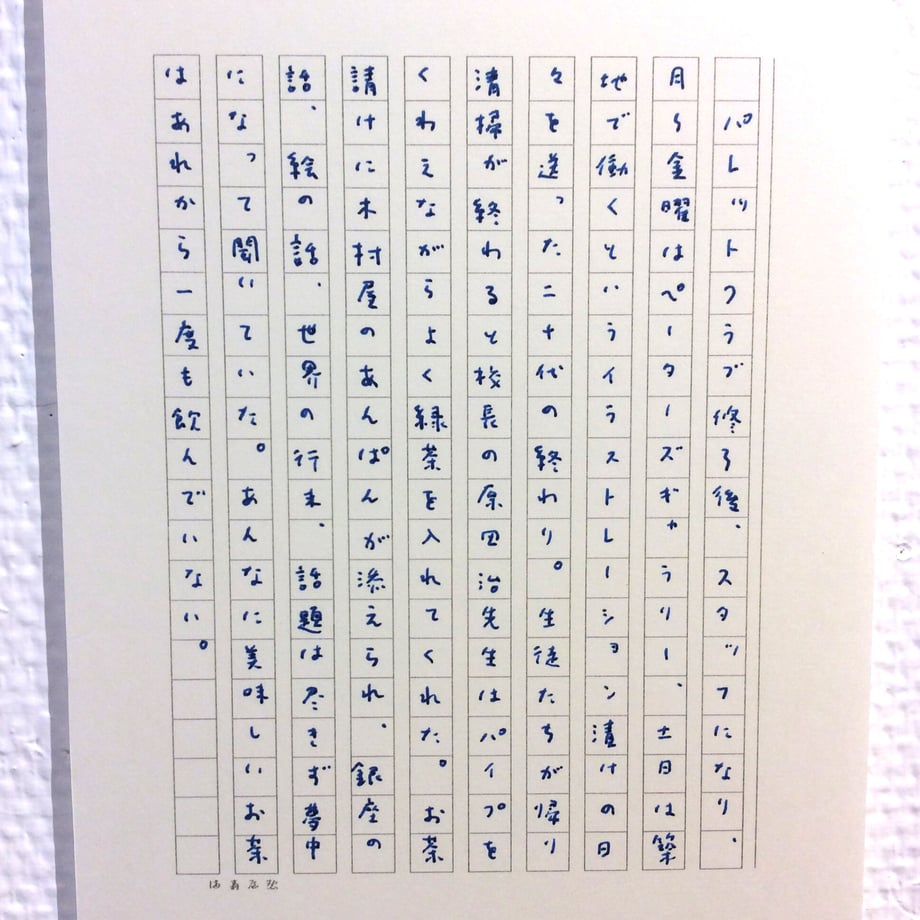 パレットクラブ修了後、スタッフになり、
月〜金曜はペーターズギャラリー、土日は築
地で働くというイラストレーション漬けの日
々を送った二十代の終わり。生徒たちが帰り
清掃が終わると校長の原田治先生はパイプを
くわえながらよく緑茶を入れてくれた。お茶
請けに木村屋のあんぱんが添えられ、銀座の
話、絵の話、世界の行末、話題は尽きず夢中
になって聞いていた。あんなに美味しいお茶
はあれから一度も飲んでいない。